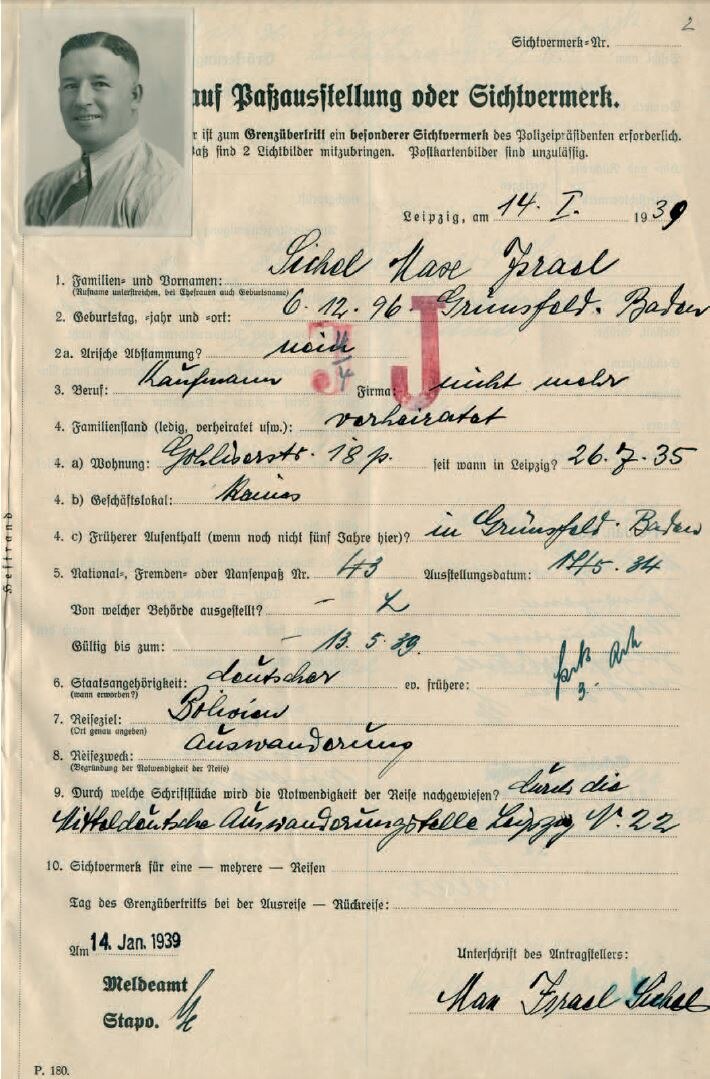 2
Sichtvermerk-Nr.
auf Paßausstellung oder Sichtvermerk.
r ist zum Grenzübertritt ein besonderer Sichtvermerk des Polizeipräsidenten erforderlich.
aß sind 2 Lichtbilder mitzubringen. Postkartenbilder sind unzulässig.
Leipzig, am 14. I. 1939
1. Familien- und Vornamen: Sichel Max Israel
(Rufname unterstreichen, bei Ehefrauen auch Geburtsname)
2. Geburtstag, -jahr und -ort: 6. 12. 96. Grünsfeld. Baden
2a. Arische Abstammung? nein J J
3. Beruf: Kaufmann Firma: nicht mehr
4. Familienstand (ledig, verheiratet usw.): verheiratet
4. a) Wohnung: Gohliserstr. 18 p. seit wann in Leipzig? 26. 7. 35
4. b) Geschäftslokal: keines
4. c) Früherer Aufenthalt (wenn noch nicht fünf Jahre hier)? in Grünsfeld. Baden
5. National-, Fremden- oder Nansenpaß Nr. 43 Ausstellungsdatum: 34
Von welcher Behörde ausgestellt? –
Gültig bis zum: – 13. 5. 39.
6. Staatsangehörigkeit: deutscher ev. frühere:
(wann erworben?)
7. Reiseziel: Bolivien
(Ort genau angeben)
8. Reisezweck: Auswanderung
(Begründung der Notwendigkeit der Reise)
9. Durch welche Schriftstücke wird die Notwendigkeit der Reise nachgewiesen? durch die
Mitteldeutsche Auswanderungstelle Leipzig N. 22
10. Sichtvermerk für eine — mehrere — Reisen
Tag des Grenzübertritts bei der Ausreise — Rückreise:
Am 14. Jan. 1939
Unterschrift des Antragstellers:
Meldeamt
Max Israel Sichel
Stapo.
P. 180.
Heftrand